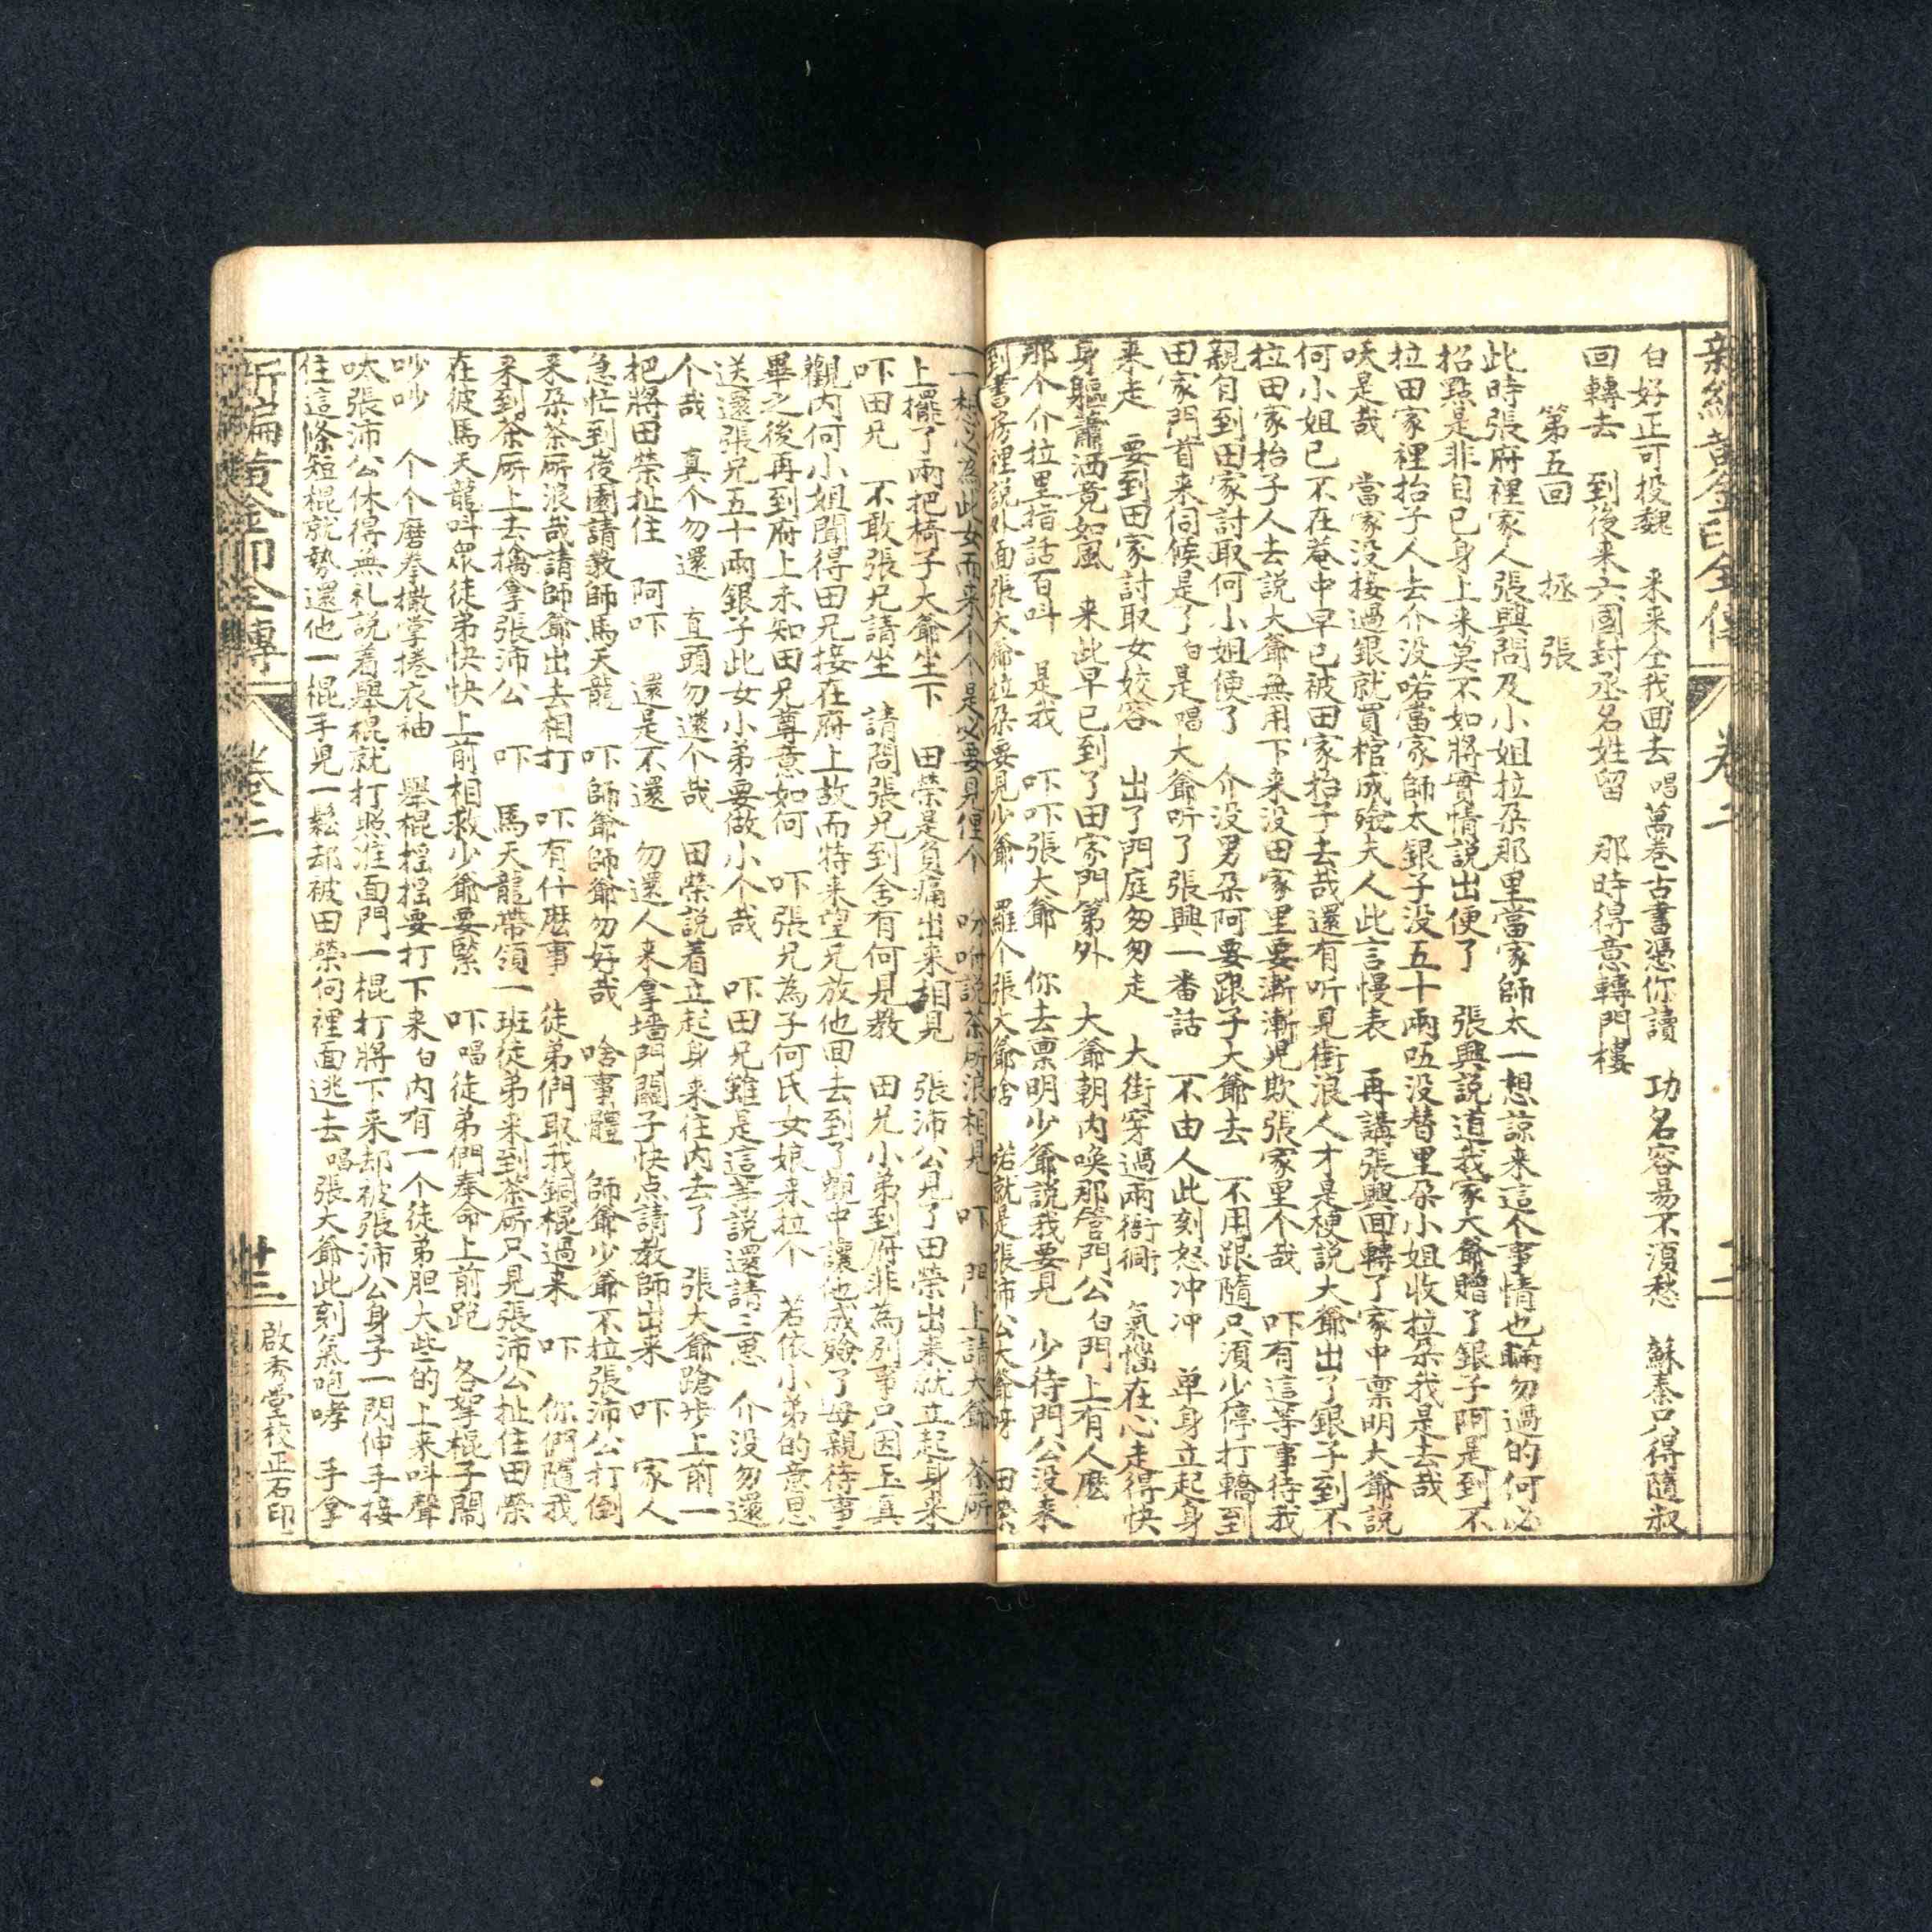 新編黃金印全傳 卷二
白好正可投魏 来来仝我回去 唱萬卷古書憑你讀 功名容易不須愁 蘇秦只得隨叔
回轉去 到後来六國封丞名姓留 那時得意轉門樓
第五回 拯 張
此時張府裡家人張興問及小姐拉朶那里當家師太一想諒来這个事情也瞞勿過的何必
招點是非自已身上来莫不如將實情説出便了 張興説道我家大爺贈了銀子阿是到不
拉田家裡抬子人去介没喏當家師太銀子没五十兩㕶没替里朶小姐收拉朶我是去哉
呸是哉 當家没接過銀就買棺成殮夫人此言慢表 再講張興回轉了家中禀明大爺説
何小姐已不在菴中早已被田家抬子去哉還有听見街浪人才是梗説大爺出了銀子到不
拉田家抬子人去説大爺無用下来没田家里要漸漸児欺張家里个哉 吓有這等事待我
親自到田家討取何小姐便了 介没男朶阿要跟子大爺去 不用跟隨只須少停打轎到
田家門首来伺候是了白是唱大爺听了張興一番話 不由人此刻怒冲冲 单身立起身
来走 要到田家討取女姣容 出了門庭匆匆走 大街穿過兩衖衕 氣惱在心走得快
身軀蕭洒竟如風 来此早已到了田家門第外 大爺朝内喚那管門公白門上有人麽
那个介拉里指話百呌 是我 吓吓張大爺 你去禀明少爺説我要見 少待門公没来
到書房裡説外面張大爺拉朶要見少爺 羅个張大爺啥 喏就是張沛公大爺呀 田榮
一想必為此女而来个个是必要見俚个 吩咐説茶㕔浪相見 吓 門上請大爺 茶㕔
上擺了兩把椅子大爺坐下 田榮是負痛出来相見 張沛公見了田榮出来就立起身来
吓田兄 不敢張兄請坐 請問張兄到舍有何見教 田兄小弟到府非為别事只因玉真
觀内何小姐聞得田兄接在府上故而特来望兄放他回去到了觀中讓他成殮了母親待事
畢之後再到府上未知田兄尊意如何 吓張兄為子何氏女娘来拉个 若依小弟的意思
送還張兄五十兩銀子此女小弟要做小个哉 吓田兄雖是這等説還請三思 介没勿還
个哉 真个勿還 直頭勿還个哉 田榮説着立起身来往内去了 張大爺蹌步上前一
把將田榮扯住 阿吓 還是不還 勿還人来拿墙門關子快点請教師出来 吓 家人
急忙到後園請教師馬天龍 吓師爺師爺勿好哉 啥事體 師爺少爺不拉張沛公打倒
来朶茶㕔浪哉請師爺出去相打 吓有什麽事 徒弟們取我銅棍過来 吓 你們隨我
来到茶㕔上去擒拿張沛公 吓 馬天龍帶領一班徒弟来到茶㕔只見張沛公扯住田榮
在彼馬天龍呌眾徒弟快快上前相救少爺要緊 吓唱徒弟們奉命上前跑 各拏棍子鬧
吵吵 个个磨拳撤掌捲衣袖 舉棍搖搖要打下来白内有一个徒弟胆大些的上来呌聲
呔張沛公休得無礼説着舉棍就打照准面門一棍打將下来却被張沛公身子一閃伸手接
住這條短棍就勢還他一棍手見一鬆却被田榮伺裡面逃去唱張大爺此刻氣咆哮 手拿
新編黃金印全傳 卷二 廿三 啟秀堂校正石印